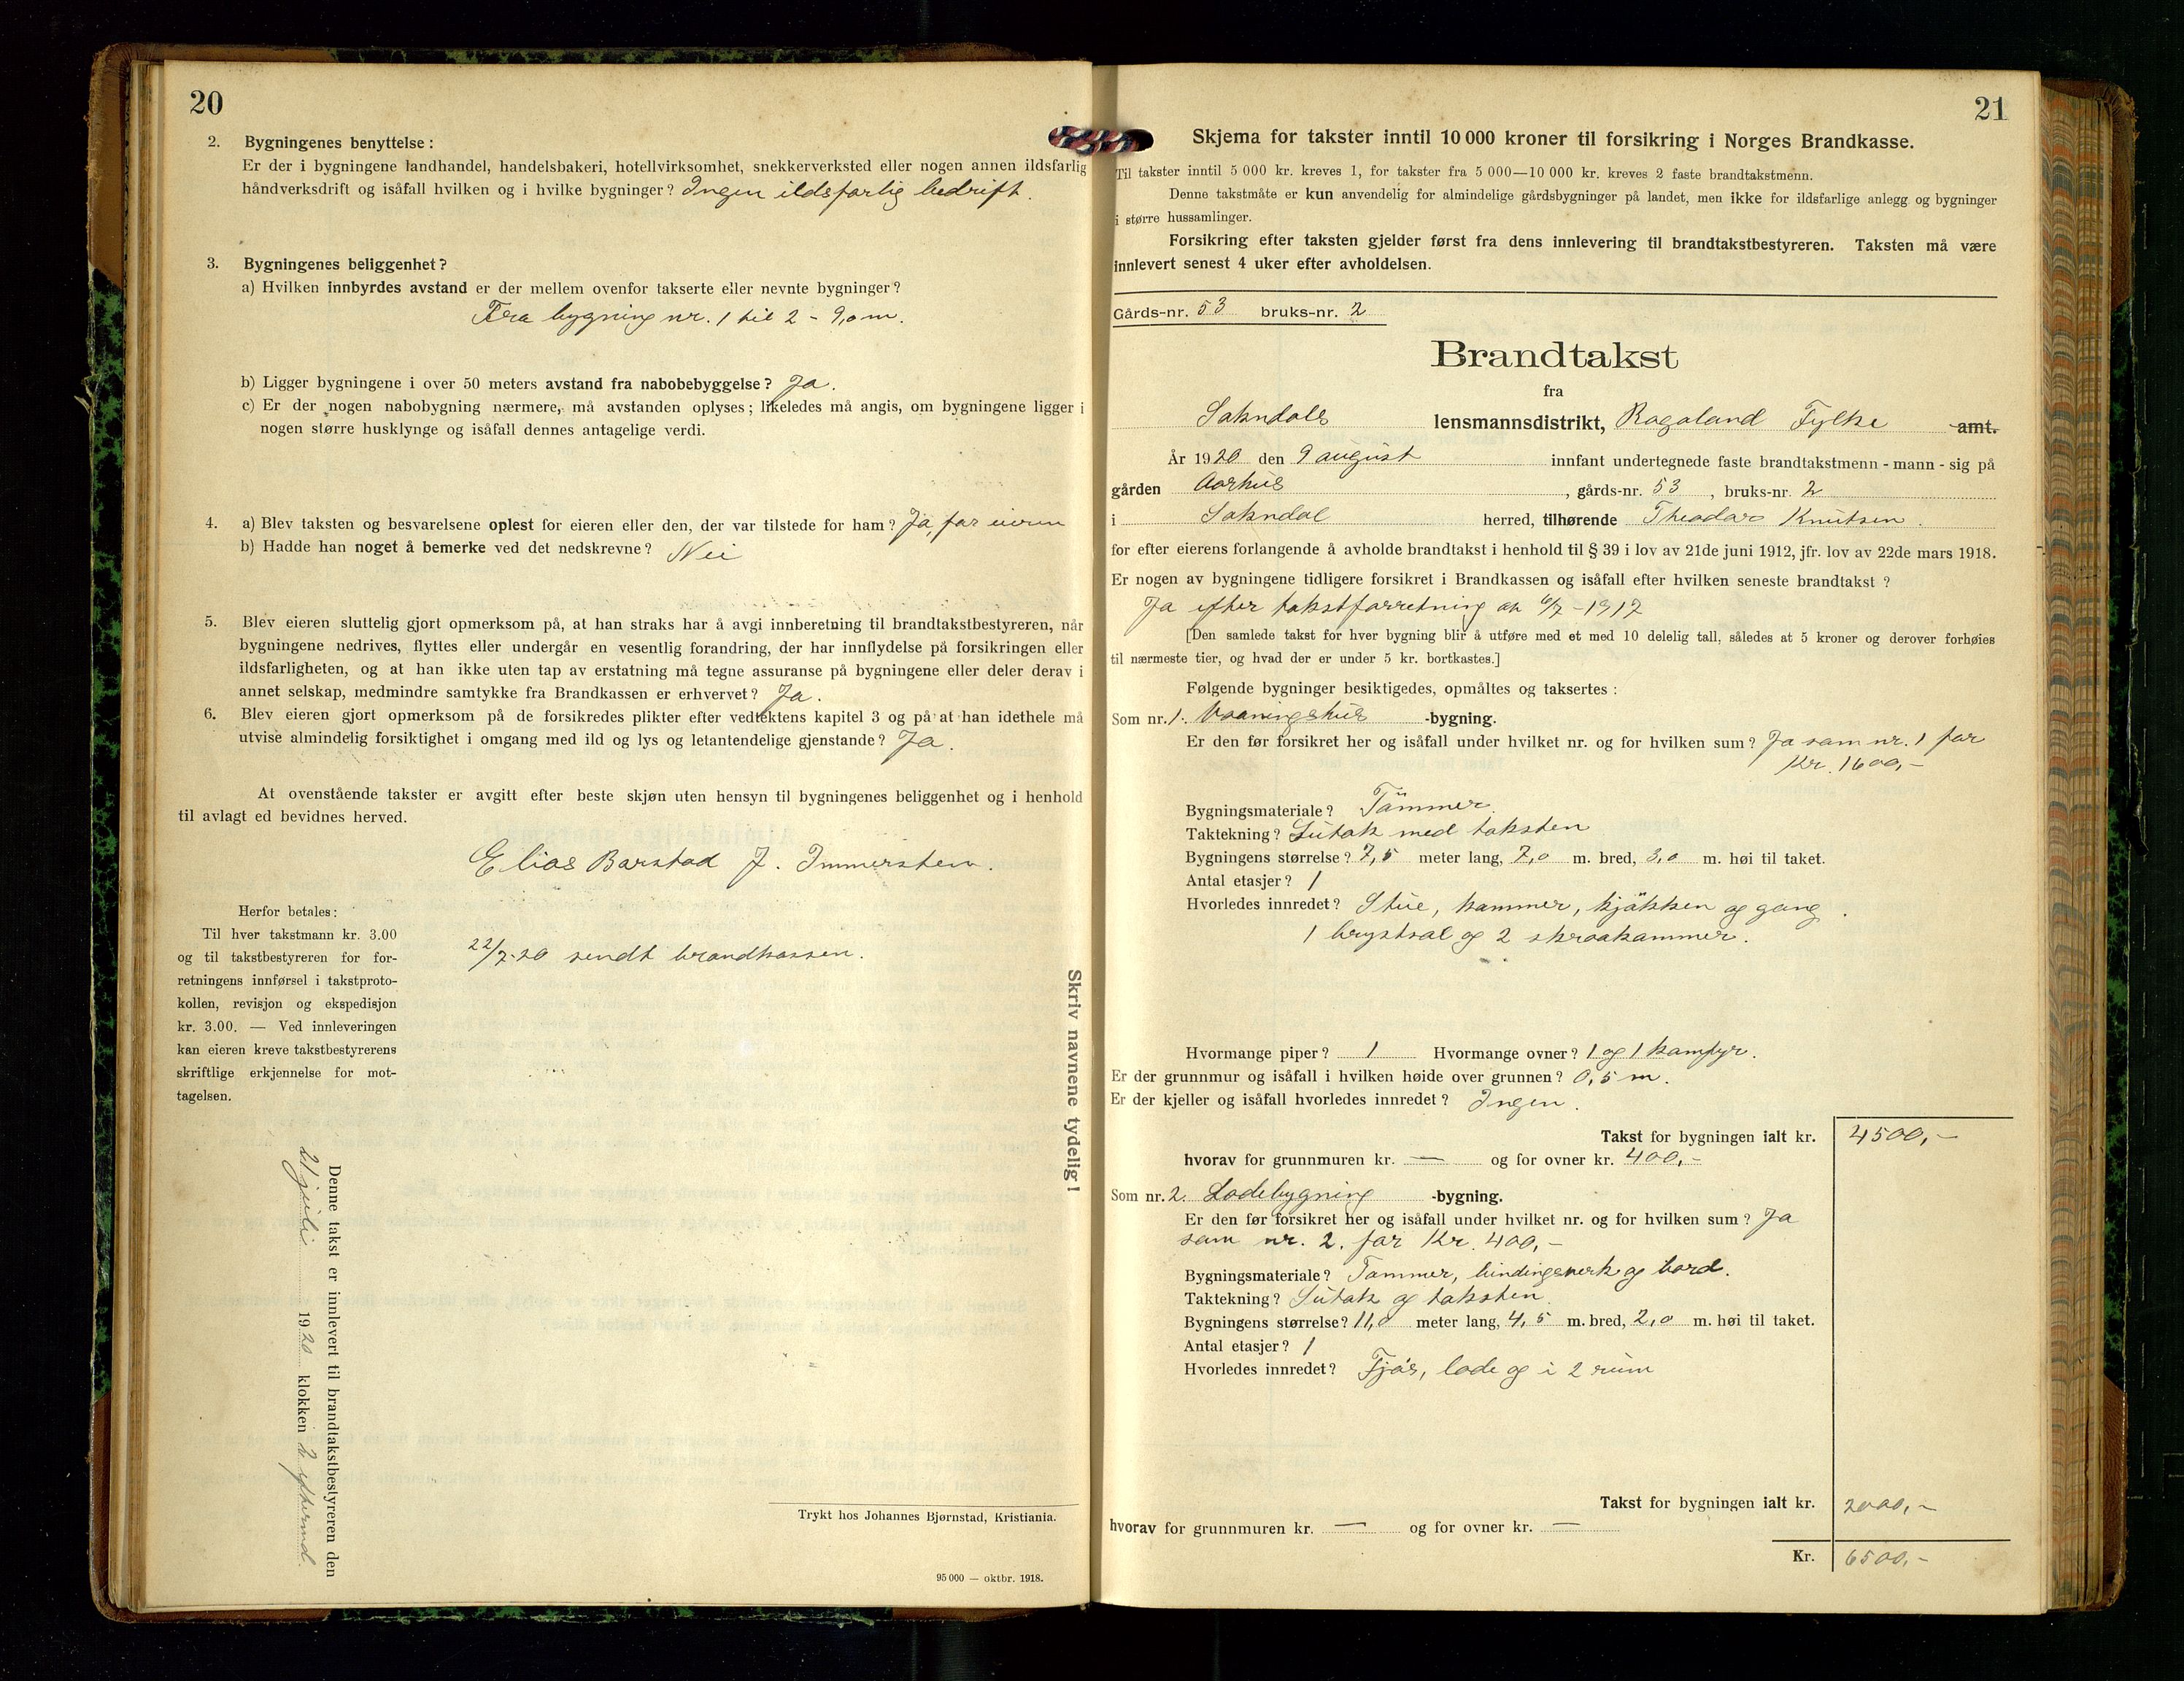 20
2. Bygningenes benyttelse:
Er der i bygningene landhandel, handelsbakeri, hotellvirksomhet, snekkerverksted eller nogen annen ildsfarlig
håndverksdrift og isåfall hvilken og i hvilke bygninger? Ingen ildsfarlig bedrift.
3. Bygningenes beliggenhet?
a) Hvilken innbyrdes avstand er der mellem ovenfor takserte eller nevnte bygninger?
Fra bygning nr. 1 til 2 - 9,0 m.
b) Ligger bygningene i over 50 meters avstand fra nabobebyggelse? Ja.
c) Er der nogen nabobygning nærmere, må avstanden oplyses; likeledes må angis, om bygningene ligger i
nogen større husklynge og isåfall dennes antagelige verdi.
4. a) Blev taksten og besvarelsene oplest for eieren eller den, der var tilstede for ham? Ja, for eieren
b) Hadde han noget å bemerke ved det nedskrevne? Nei
5. Blev eieren sluttelig gjort opmerksom på, at han straks har å avgi innberetning til brandtakstbestyreren, når
bygningene nedrives, flyttes eller undergår en vesentlig forandring, der har innflydelse på forsikringen eller
ildsfarligheten, og at han ikke uten tap av erstatning må tegne assuranse på bygningene eller deler derav i
annet selskap, medmindre samtykke fra Brandkassen er erhvervet? Ja.
6. Blev eieren gjort opmerksom på de forsikredes plikter efter vedtektens kapitel 3 og på at han idethele må
utvise almindelig forsiktighet i omgang med ild og lys og letantendelige gjenstande? Ja.
At ovenstående takster er avgitt efter beste skjøn uten hensyn til bygningenes beliggenhet og i henhold
til avlagt ed bevidnes herved.
Elias Barstad J. Immerstein.
Herfor betales:
Til hver takstmann kr. 3.00
og til takstbestyreren for for-
retningens innførsel i takstproto-
kollen, revisjon og ekspedisjon
kr. 3.00. — Ved innleveringen
kan eieren kreve takstbestyrerens
skriftlige erkjennelse for mot-
tagelsen.
22/7-20 sendt brandkassen.
Skriv navnene tydelig!
Denne takst er innlevert til brandtakstbestyreren den
21 juli 1920 klokken 2 eftermd.
Trykt hos Johannes Bjørnstad, Kristiania.
95 000 — oktbr. 1918.
21
Skjema for takster inntil 10 000 kroner til forsikring i Norges Brandkasse.
Til takster inntil 5 000 kr. kreves 1, for takster fra 5 000—10 000 kr. kreves 2 faste brandtakstmenn.
Denne takstmåte er kun anvendelig for almindelige gårdsbygninger på landet, men ikke for ildsfarlige anlegg og bygninger
i større hussamlinger.
Forsikring efter taksten gjelder først fra dens innlevering til brandtakstbestyreren. Taksten må være
innlevert senest 4 uker efter avholdelsen.
Gårds-nr. 53 bruks-nr. 2
Brandtakst
fra
Sokndals lensmannsdistrikt, Rogaland Fylke amt.
År 1920 den 9 august innfant undertegnede faste brandtakstmenn - mann - sig på
gården Aarhus, gårds-nr. 53, bruks-nr. 2
i Sokndal herred, tilhørende Theodor Knutsen.
for efter eierens forlangende å avholde brandtakst i henhold til § 39 i lov av 21de juni 1912, jfr. lov av 22de mars 1918.
Er nogen av bygningene tidligere forsikret i Brandkassen og isåfall efter hvilken seneste brandtakst?
Ja efter takstforretning av 6/7-1917
[Den samlede takst for hver bygning blir å utføre med et med 10 delelig tall, således at 5 kroner og derover forhøies
til nærmeste tier, og hvad der er under 5 kr. bortkastes.]
Følgende bygninger besiktigedes, opmåltes og taksertes:
Som nr. 1. Vaaningshus -bygning.
Er den før forsikret her og isåfall under hvilket nr. og for hvilken sum? Ja som nr. 1 for
Kr. 1600,-
Bygningsmateriale? Tömmer.
Taktekning? Sutak med taksten
Bygningens størrelse? 7,5 meter lang, 7,0 m. bred, 3,0 m. høi til taket.
Antal etasjer? 1
Hvorledes innredet? Stue, kammer, kjökken og gang.
1 brystsal og 2 skraakammer.
Hvormange piper? 1 Hvormange ovner? 1 og 1 komfyr.
Er der grunnmur og isåfall i hvilken høide over grunnen? 0,5 m.
Er der kjeller og isåfall hvorledes innredet? Ingen.
Takst for bygningen ialt kr. 4500,-
hvorav for grunnmuren kr. — og for ovner kr. 400,-
Som nr. 2. Lodebygning -bygning.
Er den før forsikret her og isåfall under hvilket nr. og for hvilken sum? Ja
som nr. 2. for Kr. 400,-
Bygningsmateriale? Tommer, bindingsverk og bord.
Taktekning? Sutak og taksten.
Bygningens størrelse? 11,0 meter lang, 4,5 m. bred, 2,0 m. høi til taket.
Antal etasjer? 1
Hvorledes innredet? Fjös, lode og i 2 rum
Takst for bygningen ialt kr. 2000,-
hvorav for grunnmuren kr. — og for ovner kr. —
Kr. 6500,-